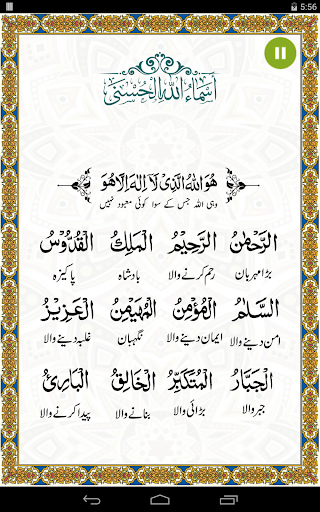 5:56
اَسْمَاءُ اللّٰهِ الْحُسْنٰى
هُوَ اللّٰهُ الَّذِىْ لَآ اِلٰهَ اِلَّا هُوَ
وہی اللہ جس کے سوا کوئی معبود نہیں
اَلرَّحْمٰنُ اَلرَّحِيْمُ اَلْمَلِكُ اَلْقُدُّوْسُ
بڑا مہربان رحم کرنے والا بادشاہ پاکیزہ
اَلسَّلٰمُ اَلْمُؤْمِنُ اَلْمُهَيْمِنُ اَلْعَزِيْزُ
امن دینے والا ایمان دینے والا نگهبان غلبہ دینے والا
اَلْجَبَّارُ اَلْمُتَكَبِّرُ اَلْخَالِقُ اَلْبَارِئُ
جبر والا بڑائی والا بنانے والا پیدا کرنے والا